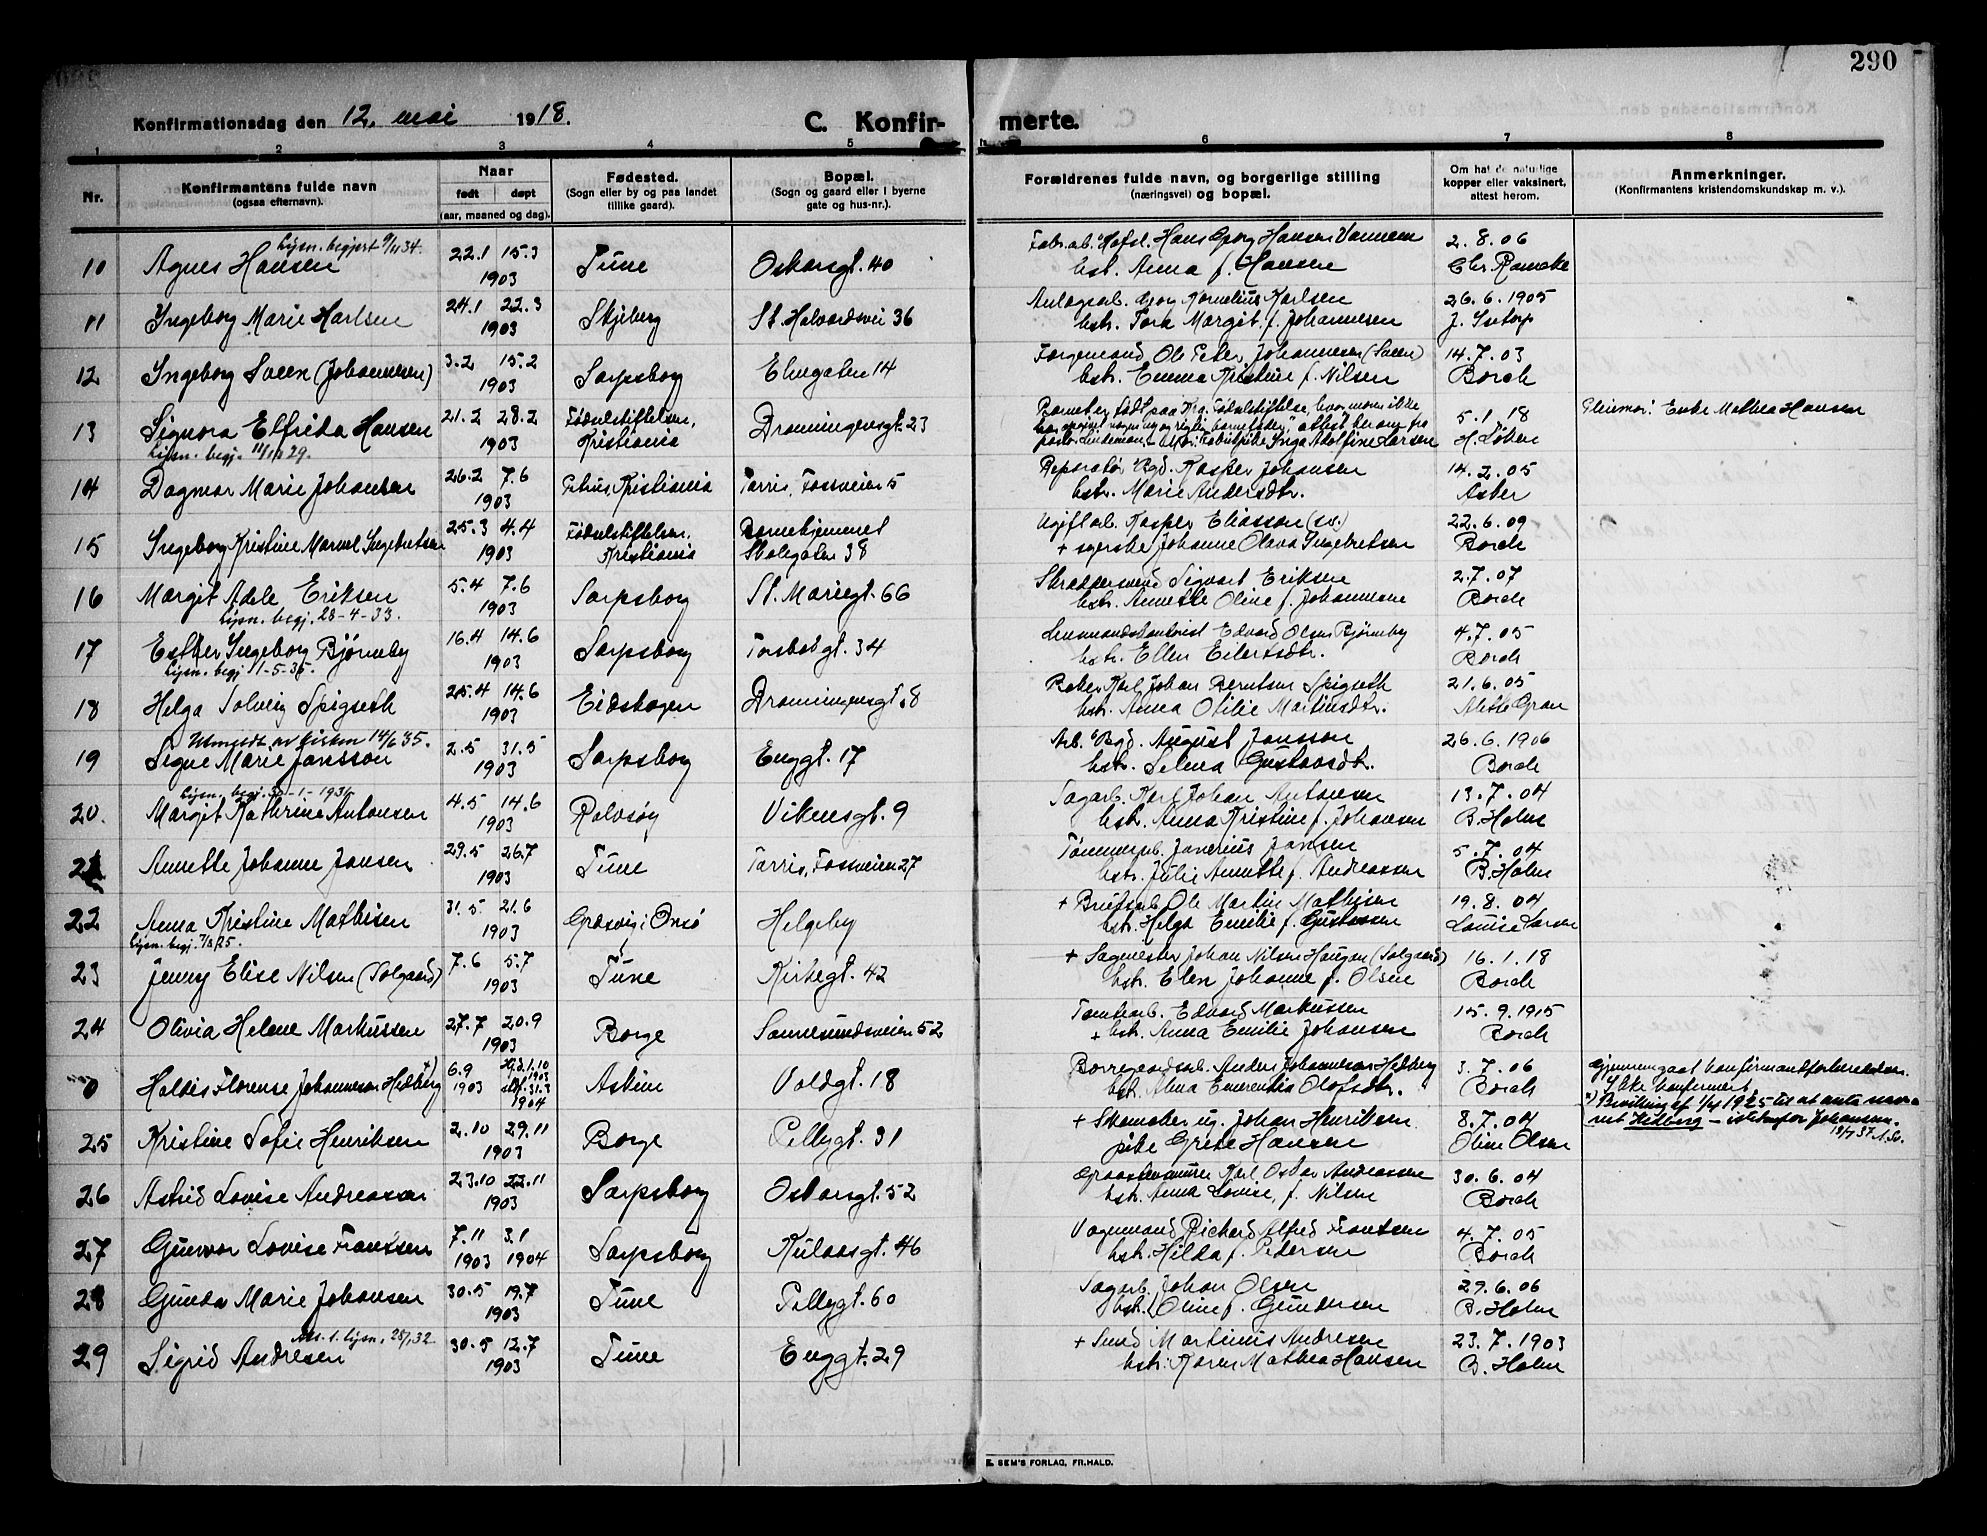 290
Konfirmationsdag den 12. mai 1918.
C. Konfirmerte.
1 2 3 4 5 6 7 8
Nr.
Konfirmantens fulde navn
(ogsaa efternavn).
Naar
født døpt
(aar, maaned og dag).
Fødested.
(Sogn eller by og paa landet
tillike gaard).
Bopæl.
(Sogn og gaard eller i byerne
gate og hus-nr.).
Forældrenes fulde navn, og borgerlige stilling
(næringsvei) og bopæl.
Om hat de naturlige
kopper eller vaksinert,
attest herom.
Anmerkninger.
(Konfirmantens kristendomskundskap m. v.).
Lysn. begjært 9/4 34.
10 Agnes Hansen 22.1 15.3 1903 Tune Oskarsgt. 40
Hans Georg Hansen Vannem
hstr. Anna f. Hansen
2.8.06
11 Ingeborg Marie Karlsen 24.1 22.3 1903 Skjeberg St. Halvardsvei 36
Anlægsarb. Georg Kornelius Karlsen
hstr. Tora Margit f. Johannesen
26.6.1905
12 Ingeborg Sveen (Johannesen) 3.2 15.2 1903 Sarpsborg Elvegaten 14
Ole Peter Johannesen (Sveen)
hstr. Emma Kristine f. Nilsen
14.7.03
Borch
13 Signora Elfrida Hansen 21.2 28.2 1903 Fødselsstiftelsen, Kristiania Dronningensgt. 23
Lysn. begj. 11/1 29.
Barnet er født paa Kra. Fødselsstiftelse, hvor moren ikke
Inga Adolfine Larsen
5.1.18
H. Løken
Pleiemor: Enke Mathea Hansen
14 Dagmar Marie Johansen 26.2 7.6 1903 Petrus, Kristiania Tarris, Fossveien 5
Reparatør Bgd. Kasper Johansen
hstr. Marie Andersdtr.
14.2.05
Asker
15 Ingeborg Kristine Marvel Ingebretsen 25.3 4.4 1903 Fødselsstiftelsen, Kristiania Barnehjemmet Skolegaten 38
Ugift arb. Kasper Eliasson (sv.)
+ syerske Johanne Olava Ingebretsen
22.6.09
Borch
16 Margit Adele Eriksen 5.4 7.6 1903 Sarpsborg St. Mariegt. 66
Lysn. begj. 28-4-33.
Skræddersvend Sigvart Eriksen
hstr. Annette Oline f. Johannesen
2.7.07
Borch
17 Esther Ingeborg Bjørneby 16.4 14.6 1903 Sarpsborg Torsbekgt. 34
Lysn. begj 11-5-35.
Lensmandskontorist Edvard Olsen Bjørneby
hstr. Ellen Eilertsdtr.
4.7.05
Borch
18 Helga Solveig Spigseth 25.4 14.6 1903 Eidskogen Dronningensgt. 8
Baker Karl Johan Berntsen Spigseth
hstr. Anna Otilie Martinsdtr.
21.6.05
Mette Gran
Utmeldt av kirken 14/6 35.
19 Signe Marie Jansson 2.5 31.5 1903 Sarpsborg Enggt. 17
Arb. Bgd. August Jansson
hstr. Selma Gustavsdtr.
26.6.1906
Borch
20. Margit Kathrine Antonsen 4.5 14.6 1903 Rolvsøy Vikensgt. 9
Sagarb. Karl Johan Antonsen
hstr. Anna Kristine f. Johansen
13.7.04
B. Holm
21 Annette Johanne Jansen 29.5 26.7 1903 Tune Tarris, Fossveien 27
Tømmerarb. Janerius Jansen
hstr. Julie Annette f. Andreassen
5.7.04
B. Holm
22 Anna Kristine Mathisen 31.5 21.6 1903 Græsvig i Onsø Helgeby
Lysn. begj. 7/8 25.
+ Ole Martin Mathisen
hstr. Helga Emilie f. Gustavsen
19.8.04
Louise Larsen
23 Jenny Elise Nilsen (Solgaard) 7.6 5.7 1903 Tune Kirkegt. 42
+ Sagmester Johan Nilsen Haugen (Solgaard)
hstr. Elen Johanne f. Olsen
16.1.18
Borch
24 Olivia Helene Markussen 27.7 20.9 1903 Borge Sannesundsveien 52
Tomtearb. Edvard Markussen
+ hstr. Anna Emilie Johansen
15.9.1915
Borch
0 Haldis Florense Johannesen Hedberg x) 6.9 1903 Hjd. 1.10 1903 31.3 1904 Askim Voldgt. 18
Borregaardsarb. Anders Johannesen Hedberg
hstr. Alma Emerentia Olofsdtr.
3.7.06
Borch
Gjennemgaat konfirmantforberedelsen.
Ikke konfirmert
x) Bevilling af 1/4 1925 til at anta navnet Hedberg – istedenfor Johansen.
25 Kristine Sofie Henriksen 2.10 29.11 1903 Borge Pellygt. 31
+ Skomaker ug. Johan Henriksen
pike Grete Hansen
8.7.04
Oline Olsen
26 Astrid Lovise Andreassen 23.10 22.11 1903 Sarpsborg Oskarsgt. 52
Karl Oskar Andreassen
hstr. Anna Lovise, f. Nilsen
30.6.04
Borch
27 Gunvor Lovise Frantsen 7.11 1903 3.1 1904 Sarpsborg Kulaasgt. 46
Vognmand Richard Alfred Frantsen
hstr. Hilda f. Pedersen
4.7.05
Borch
28 Gunda Marie Johansen 30.5 19.7 1903 Tune Pellygt. 60
Sagarb. Johan Olsen
hstr. Oline f. Gundersen
29.6.06
B. Holm
29 Sigrid Andresen 30.5 12.7 1903 Tune Enggt. 29
+ Smed Martinus Andresen
hstr. Karen Mathea Hansen
23.7.1903
B. Holm
E. SEM'S FORLAG, FR.HALD.